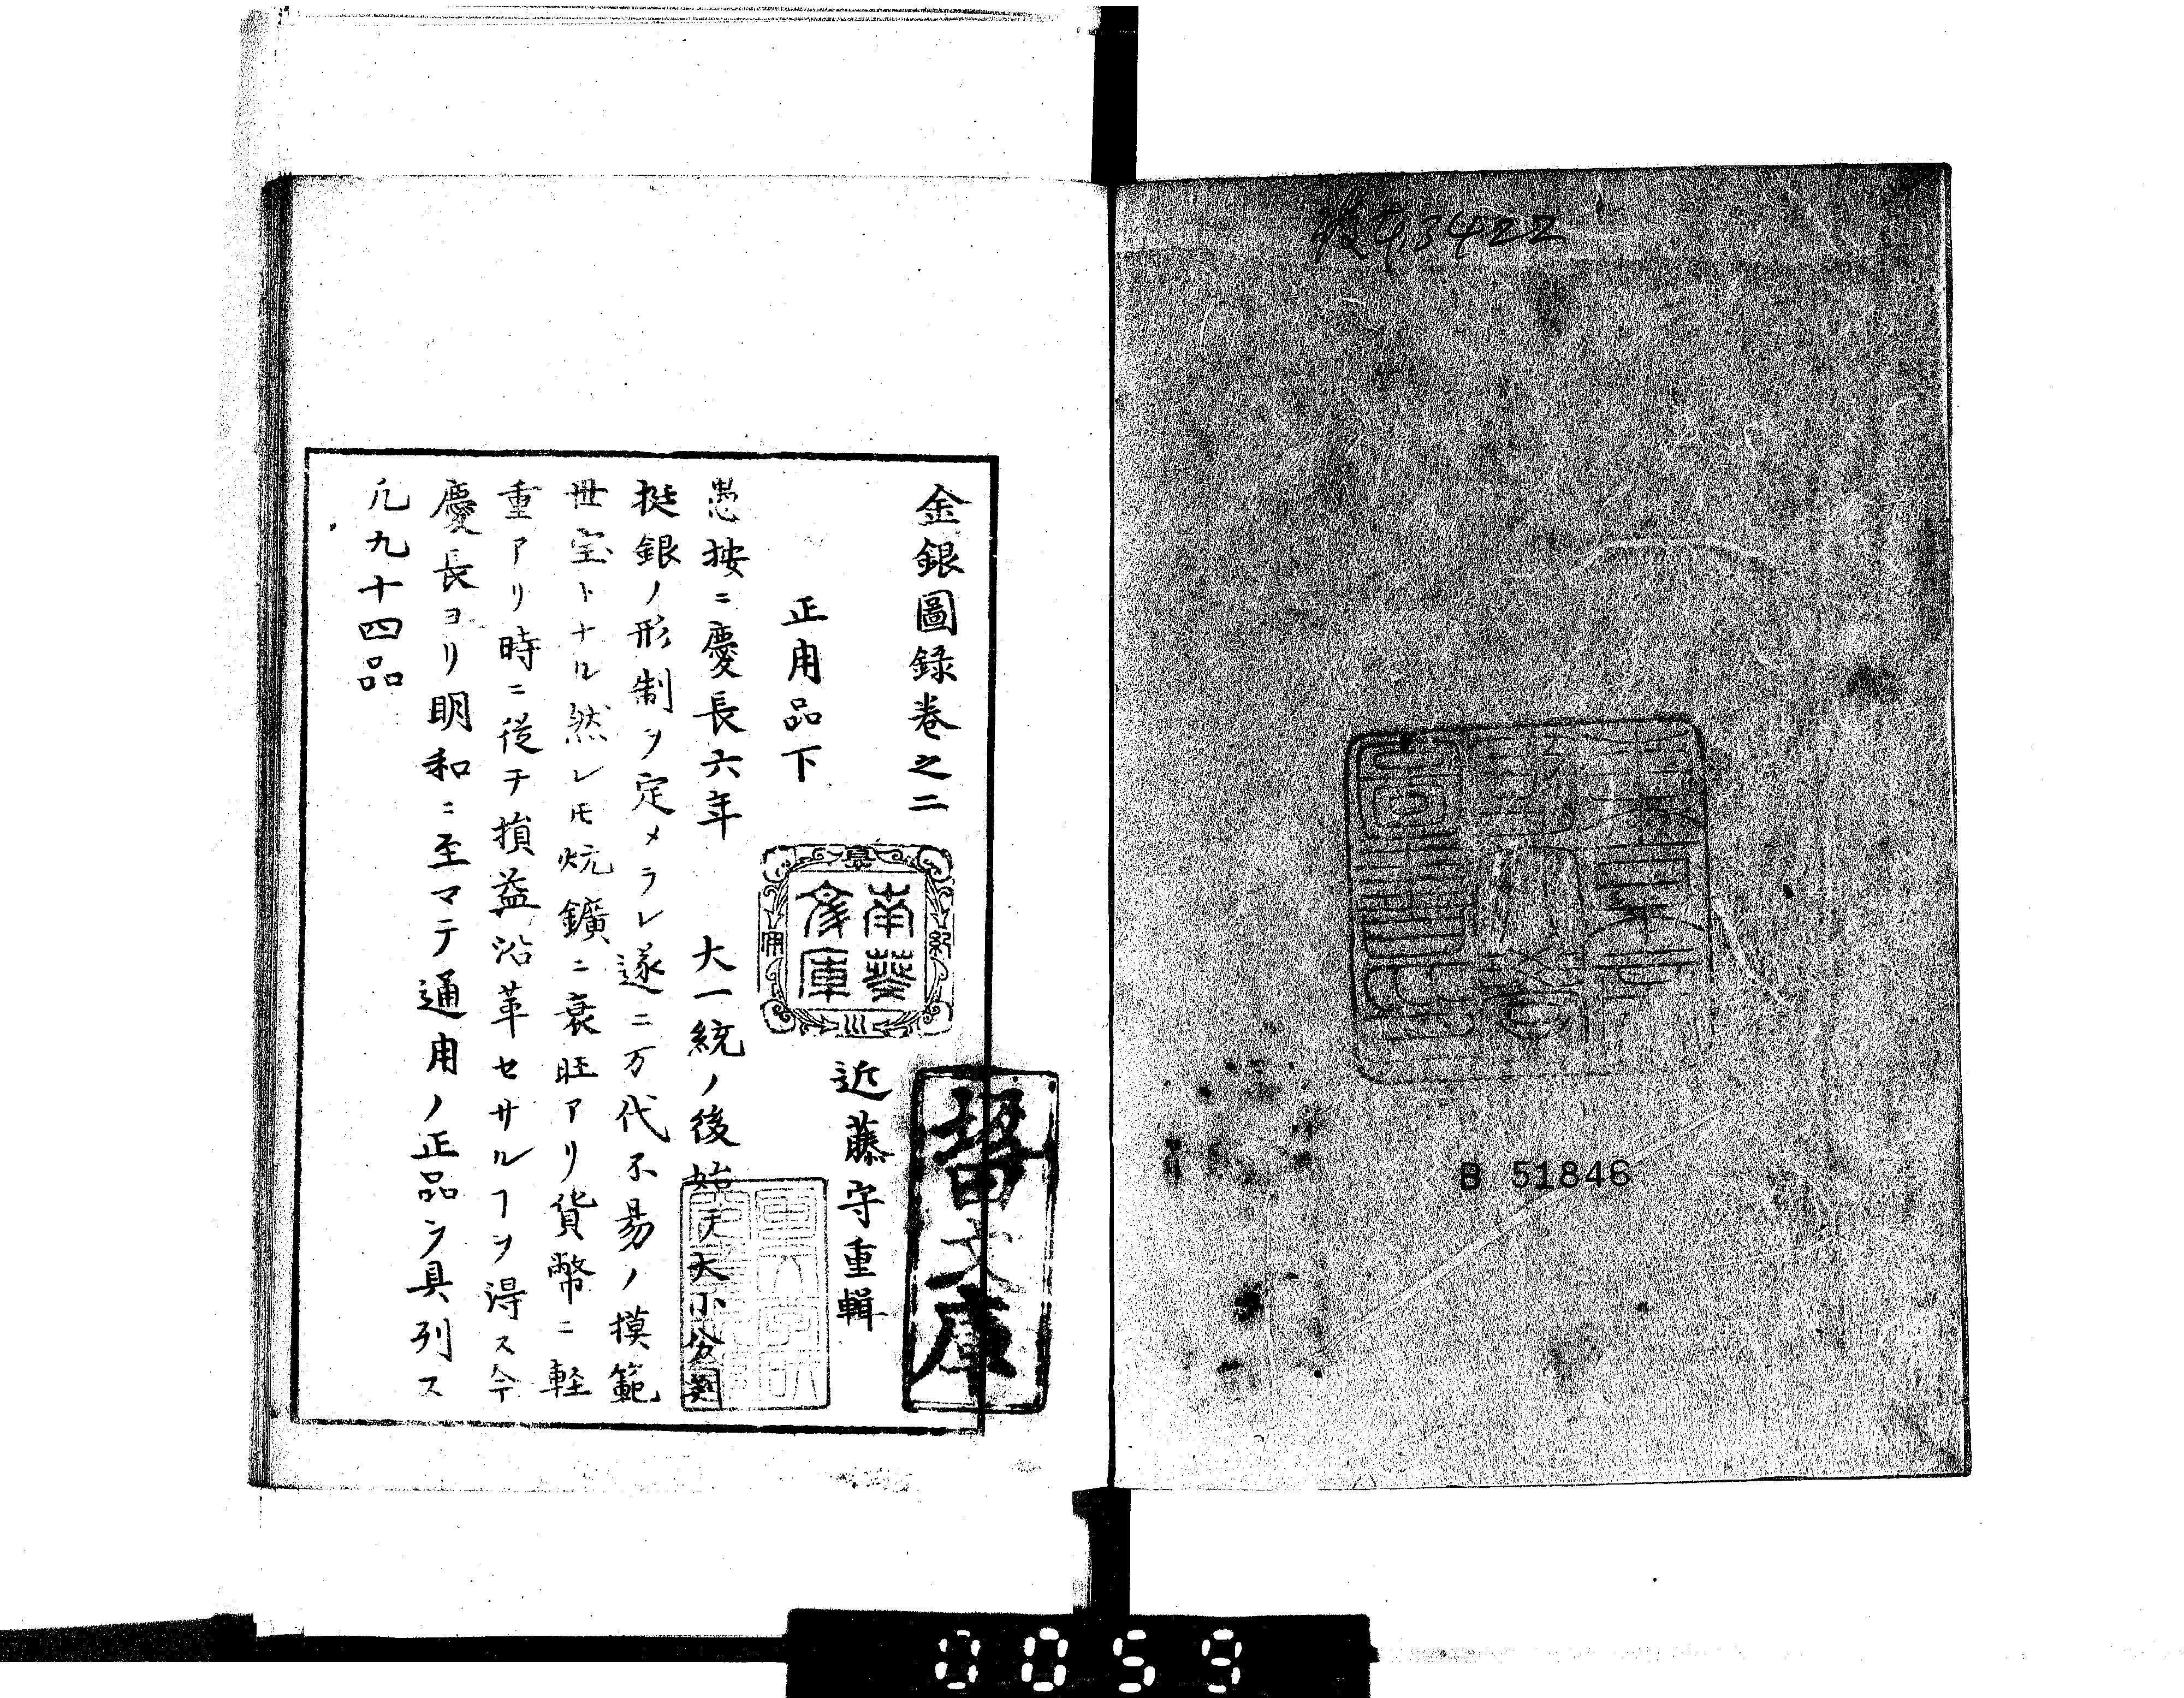 3422
B 51846
金銀圖録巻之二
近藤守重輯
正用品下
愚按ニ慶長六年 大一統ノ後始テ大小分判
挺銀ノ形制ヲ定メラレ遂ニ万代不易ノ摸範
世宝トナル然レ𪜈坑鑛ニ衰旺アリ貨幣ニ軽
重アリ時ニ從テ損益沿革セサルヿヲ得ス今
慶長ヨリ明和ニ至マテ通用ノ正品ヲ具列ス
凢九十四品
南葵
文庫
文庫
0059